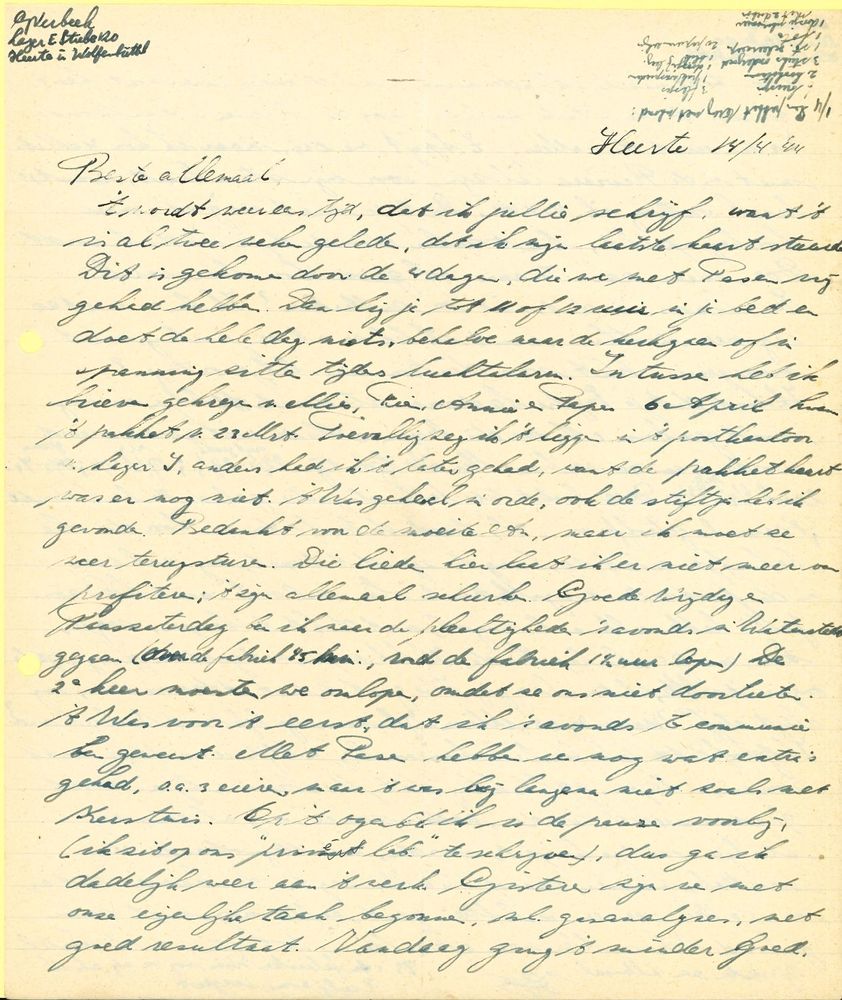 G Verbeek
Lager E Strebo 120
Heerte ü Wolfenbüttel
Heerte 14/4 '44
Beste allemaal,
't wordt weer eens tijd, dat ik jullie schrijf, want 't
is al twee weke gelede, dat ik mijn laatste kaart stuurde
Dit is gekome door de 4 dagen, die we met Pasen vrij
gehad hebben. Dan lig je tot 11 of 12 uur in je bed en
doet de hele dag niets, behalve naar de kerk gaan of in
spanning zitte tijdes luchtalarm. Intusse heb ik
brieve gekrege v. Mies, Rie, Annie e Papa 6 April kwam
't pakket v. 22 Mrt. Toevallig zag ik 't ligge in 't postkantoor
v. Lager I, anders had ik 't later gehad, want de pakketkaart
was er nog niet. 't Was geheel in orde, ook de stiftje heb ik
gevonde. Bedankt voor de moeite, maar ik moet ze
weer terugsture. Die liede hier laat ik er niet meer van
profitere; 't zijn allemaal schurke. Goede Vrijdag e
Paaszaterdag be ik naar de plechtighede 's avonds in Watenstedt
gegaan (de fabriek 45 km., rond de fabriek 1½ uur lope) De
2e keer moeste we omlope, omdat ze ons niet doorliete.
't Was voor 't eerst, dat ik 's avonds te communie
be geweest. Met Pase hebbe we nog wat extra's
gehad, o.a. 3 eiere, maar 't was bij langena niet zoals met
Kerstmis. Op 't ogenblik is de pauze voorbij,
(ik zit op ons "privé lab." te schrijve), dus ga ik
dadelijk weer aan 't werk. Gistere zijn we met
onze eigenlijke taak begonne, nl. gasanalyses, met
goed resultaat. Vandaag ging 't minder goed.